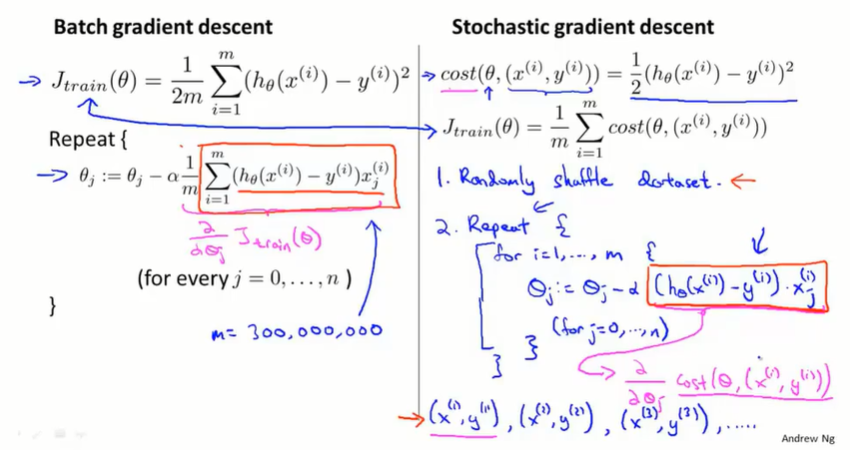 Batch gradient descent
→ J_train(θ) = 1/2m ∑_{i=1}^{m} (h_θ(x^(i)) − y^(i))²
Repeat {
→ θ_j := θ_j − α 1/m ∑_{i=1}^{m} (h_θ(x^(i)) − y^(i))x_j^(i)
∂/∂θ_j J_train(θ)
(for every j = 0, . . . , n )
}
m= 300,000,000
Stochastic gradient descent
→ cost(θ, (x^(i), y^(i))) = 1/2 (h_θ(x^(i)) − y^(i))²
J_train(θ) = 1/m ∑_{i=1}^{m} cost(θ, (x^(i), y^(i)))
1. Randomly shuffle dataset. ←
2. Repeat {
for i=1,...,m {
θ_j := θ_j − α (h_θ(x^(i)) − y^(i)) · x_j^(i)
(for j=0,...,n)
}
}
→ ∂/∂θ_j cost(θ, (x^(i), y^(i)))
→ (x^(1), y^(1)), (x^(2), y^(2)), (x^(3), y^(3)), .....
Andrew Ng